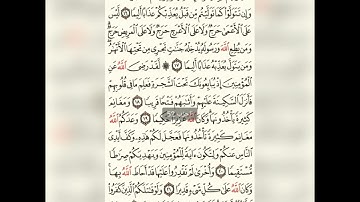 وَإِن تَتَوَلَّوْا۟ كَمَا تَوَلَّيْتُم مِّن قَبْلُ يُعَذِّبْكُمْ عَذَابًا أَلِيمًا ١٦ لَّيْسَ
عَلَى ٱلْأَعْمَىٰ حَرَجٌ وَلَا عَلَى ٱلْأَعْرَجِ حَرَجٌ وَلَا عَلَى ٱلْمَرِيضِ حَرَجٌ
وَمَن يُطِعِ ٱللَّهَ وَرَسُولَهُۥ يُدْخِلْهُ جَنَّـٰتٍ تَجْرِى مِن تَحْتِهَا ٱلْأَنْهَـٰرُ
وَمَن يَتَوَلَّ يُعَذِّبْهُ عَذَابًا أَلِيمًا ١٧ لَّقَدْ رَضِىَ ٱللَّهُ عَنِ
ٱلْمُؤْمِنِينَ إِذْ يُبَايِعُونَكَ تَحْتَ ٱلشَّجَرَةِ فَعَلِمَ مَا فِى قُلُوبِهِمْ
فَأَنزَلَ ٱلسَّكِينَةَ عَلَيْهِمْ وَأَثَـٰبَهُمْ فَتْحًا قَرِيبًا ١٨ وَمَغَانِمَ
كَثِيرَةً يَأْخُذُونَهَا وَكَانَ ٱللَّهُ عَزِيزًا حَكِيمًا ١٩ وَعَدَكُمُ ٱللَّهُ
مَغَانِمَ كَثِيرَةً تَأْخُذُونَهَا فَعَجَّلَ لَكُمْ هَـٰذِهِۦ وَكَفَّ أَيْدِىَ
ٱلنَّاسِ عَنكُمْ وَلِتَكُونَ ءَايَةً لِّلْمُؤْمِنِينَ وَيَهْدِيَكُمْ صِرَٰطًا
مُّسْتَقِيمًا ٢٠ وَأُخْرَىٰ لَمْ تَقْدِرُوا۟ عَلَيْهَا قَدْ أَحَاطَ ٱللَّهُ بِهَا
وَكَانَ ٱللَّهُ عَلَىٰ كُلِّ شَىْءٍ قَدِيرًا ٢١ وَلَوْ قَـٰتَلَكُمُ ٱلَّذِينَ كَفَرُوا۟